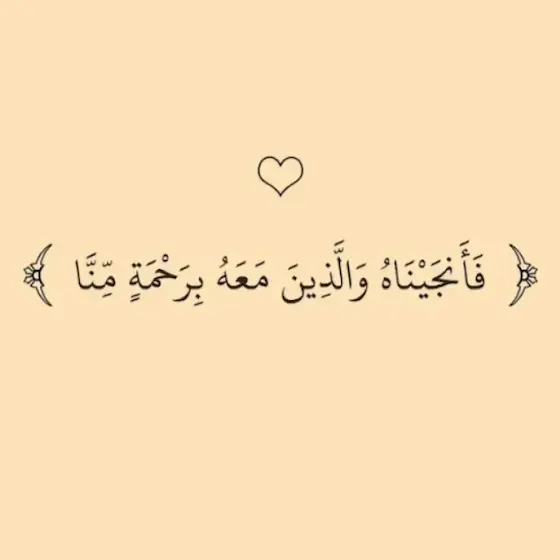 ﴿ فَأَنجَيْنَاهُ وَالَّذِينَ مَعَهُ بِرَحْمَةٍ مِّنَّا ﴾